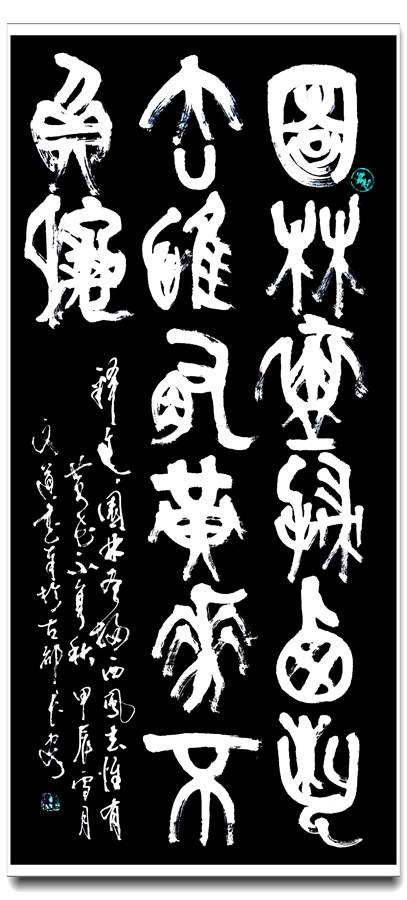 園林盡掃西風
去惟有黃花不
負秋
釋文園林尽掃西風去惟有
黃花不負秋 甲辰雪月
文道書於古都長安